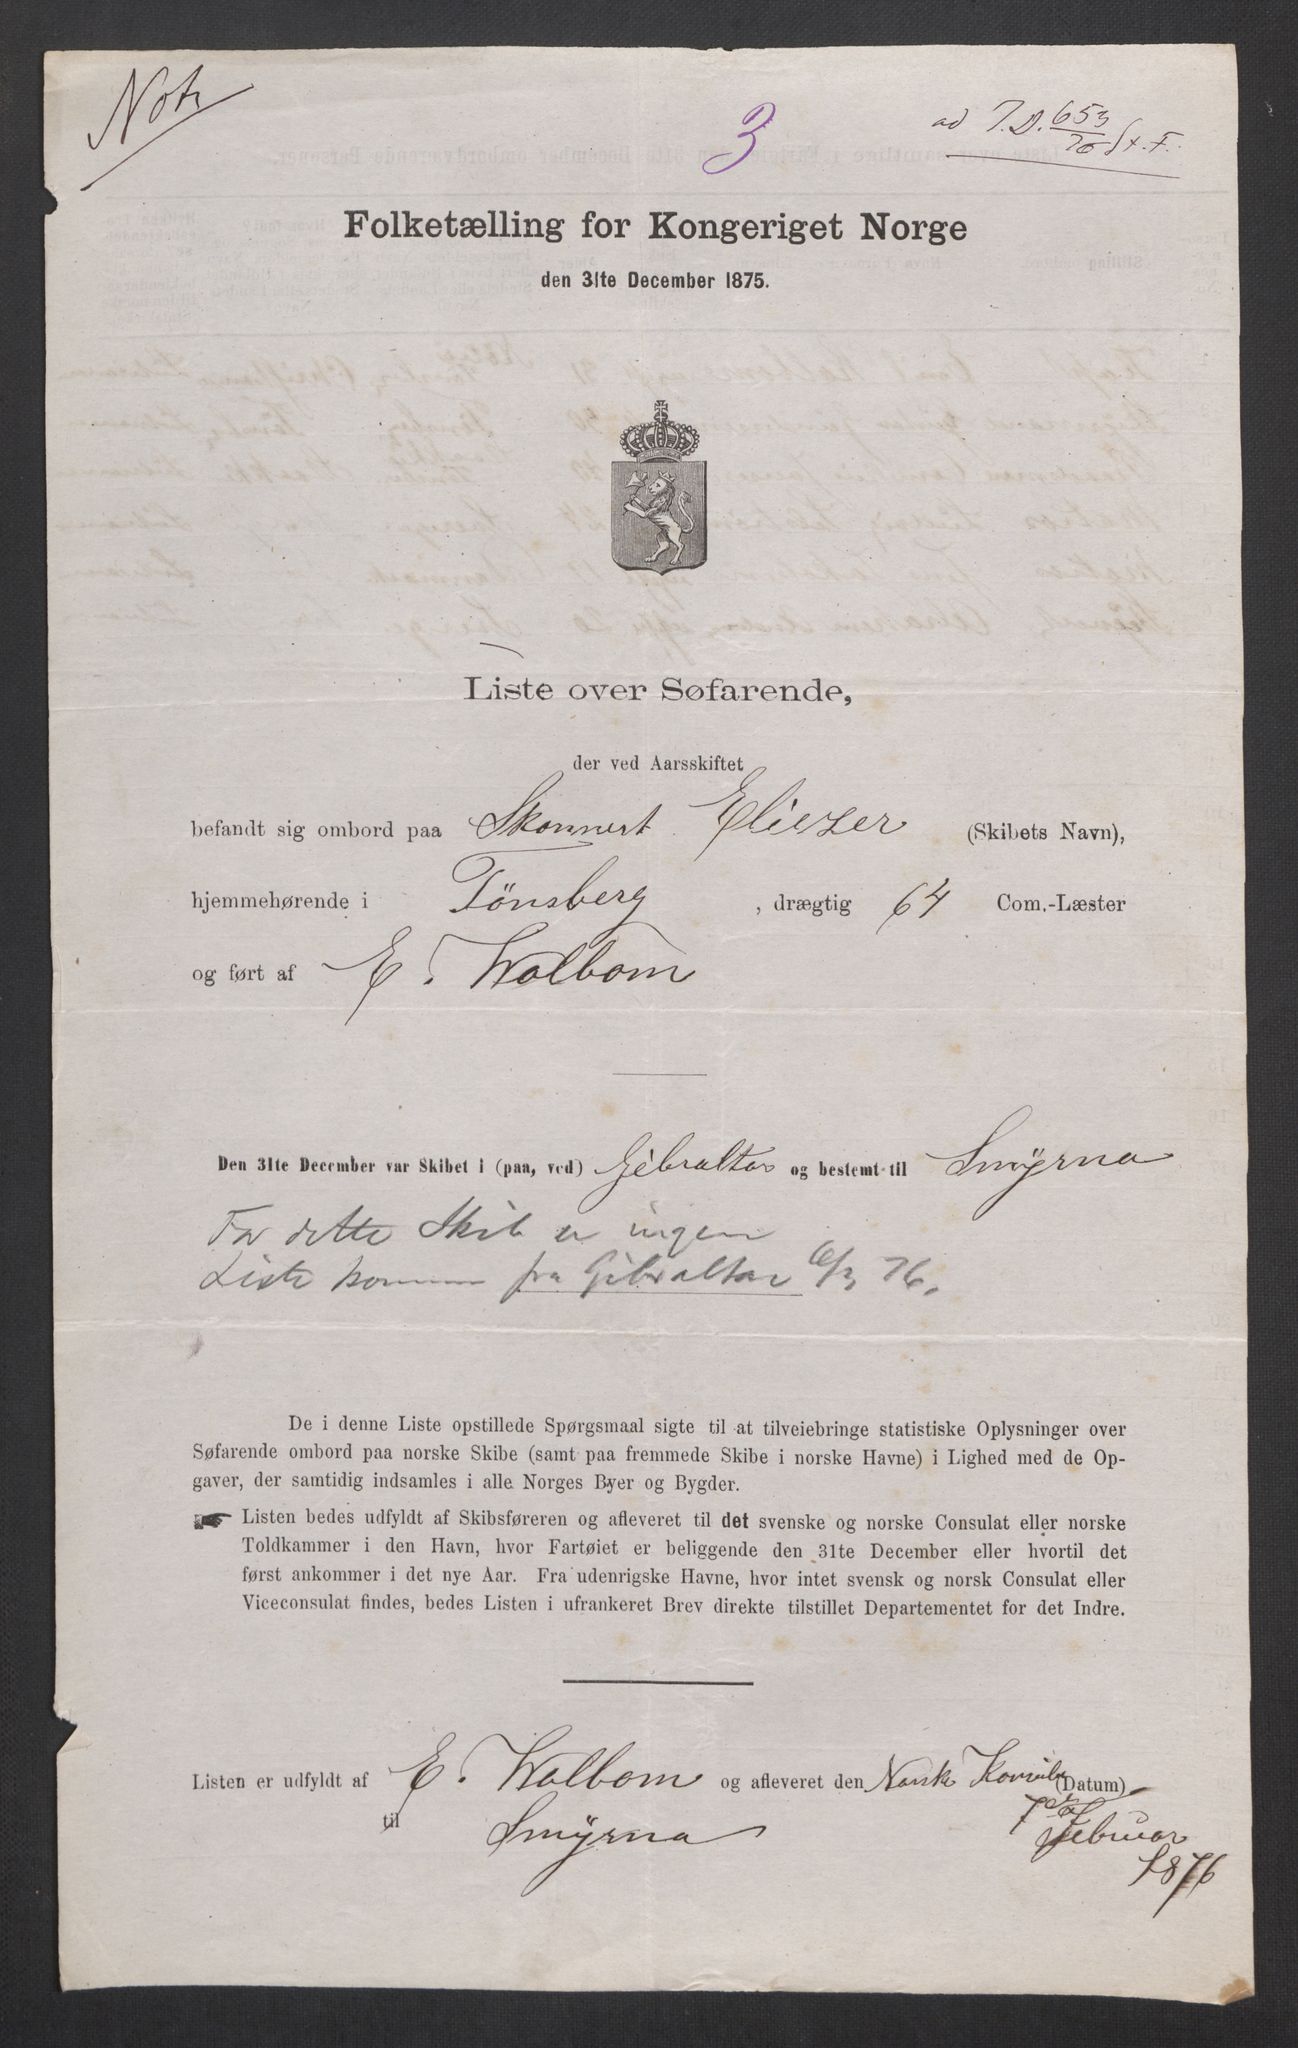 Not
3
ad J.D. 653/76 St. F.
Folketælling for Kongeriget Norge
den 31te December 1875.
Liste over Søfarende,
der ved Aarsskiftet
befandt sig ombord paa Skonnert Eliezer (Skibets Navn),
hjemmehørende i Tönsberg, drægtig 64 Com.-Læster
og ført af E. Walbom
Den 31te December var Skibet i (paa, ved) Gibraltar og bestemt til Smÿrna
For dette Skib er ingen
Liste kommen fra Gibraltar 6/3 76.
De i denne Liste opstillede Spørgsmaal sigte til at tilveiebringe statistiske Oplysninger over
Søfarende ombord paa norske Skibe (samt paa fremmede Skibe i norske Havne) i Lighed med de Op-
gaver, der samtidig indsamles i alle Norges Byer og Bygder.
Listen bedes udfyldt af Skibsføreren og afleveret til det svenske og norske Consulat eller norske
Toldkammer i den Havn, hvor Fartøiet er beliggende den 31te December eller hvortil det
først ankommer i det nye Aar. Fra udenrigske Havne, hvor intet svensk og norsk Consulat eller
Viceconsulat findes, bedes Listen i ufrankeret Brev direkte tilstillet Departementet for det Indre.
Listen er udfyldt af E. Walbom og afleveret den Norske (Datum)
til Smÿrna 7de Februar
1876